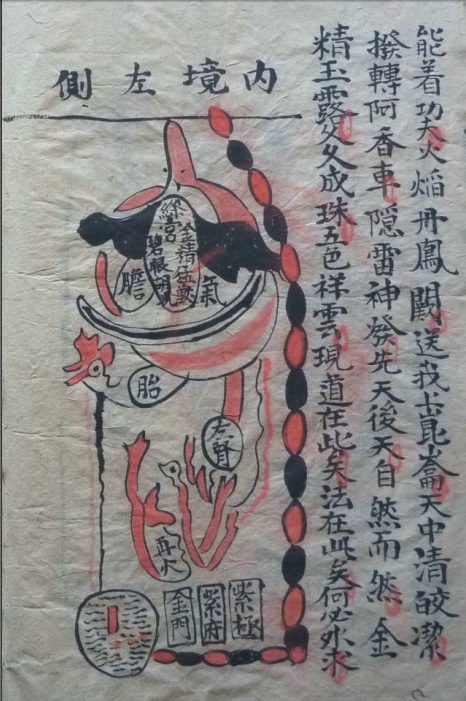 能着功夫火焰丹鳳闕送我上崑崙天中清皎潔
撥轉阿香車隱雷神發先天後天自然而然金
精玉露久久成珠五色祥雲現道在此矣法在此矣何必外求
內境左側
絳宮
金精猛獸
碧眼胡兒
氣
膽
胎
右腎
再火
紫極
紫府
金門